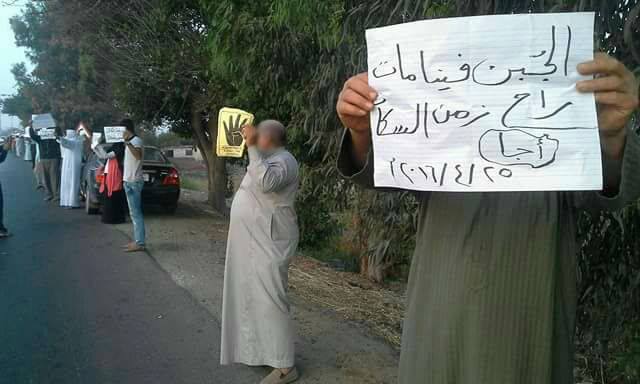 الجُبن فينا مات
راح زمن السكات
أجا
٢٠١٦/٤/٢٥